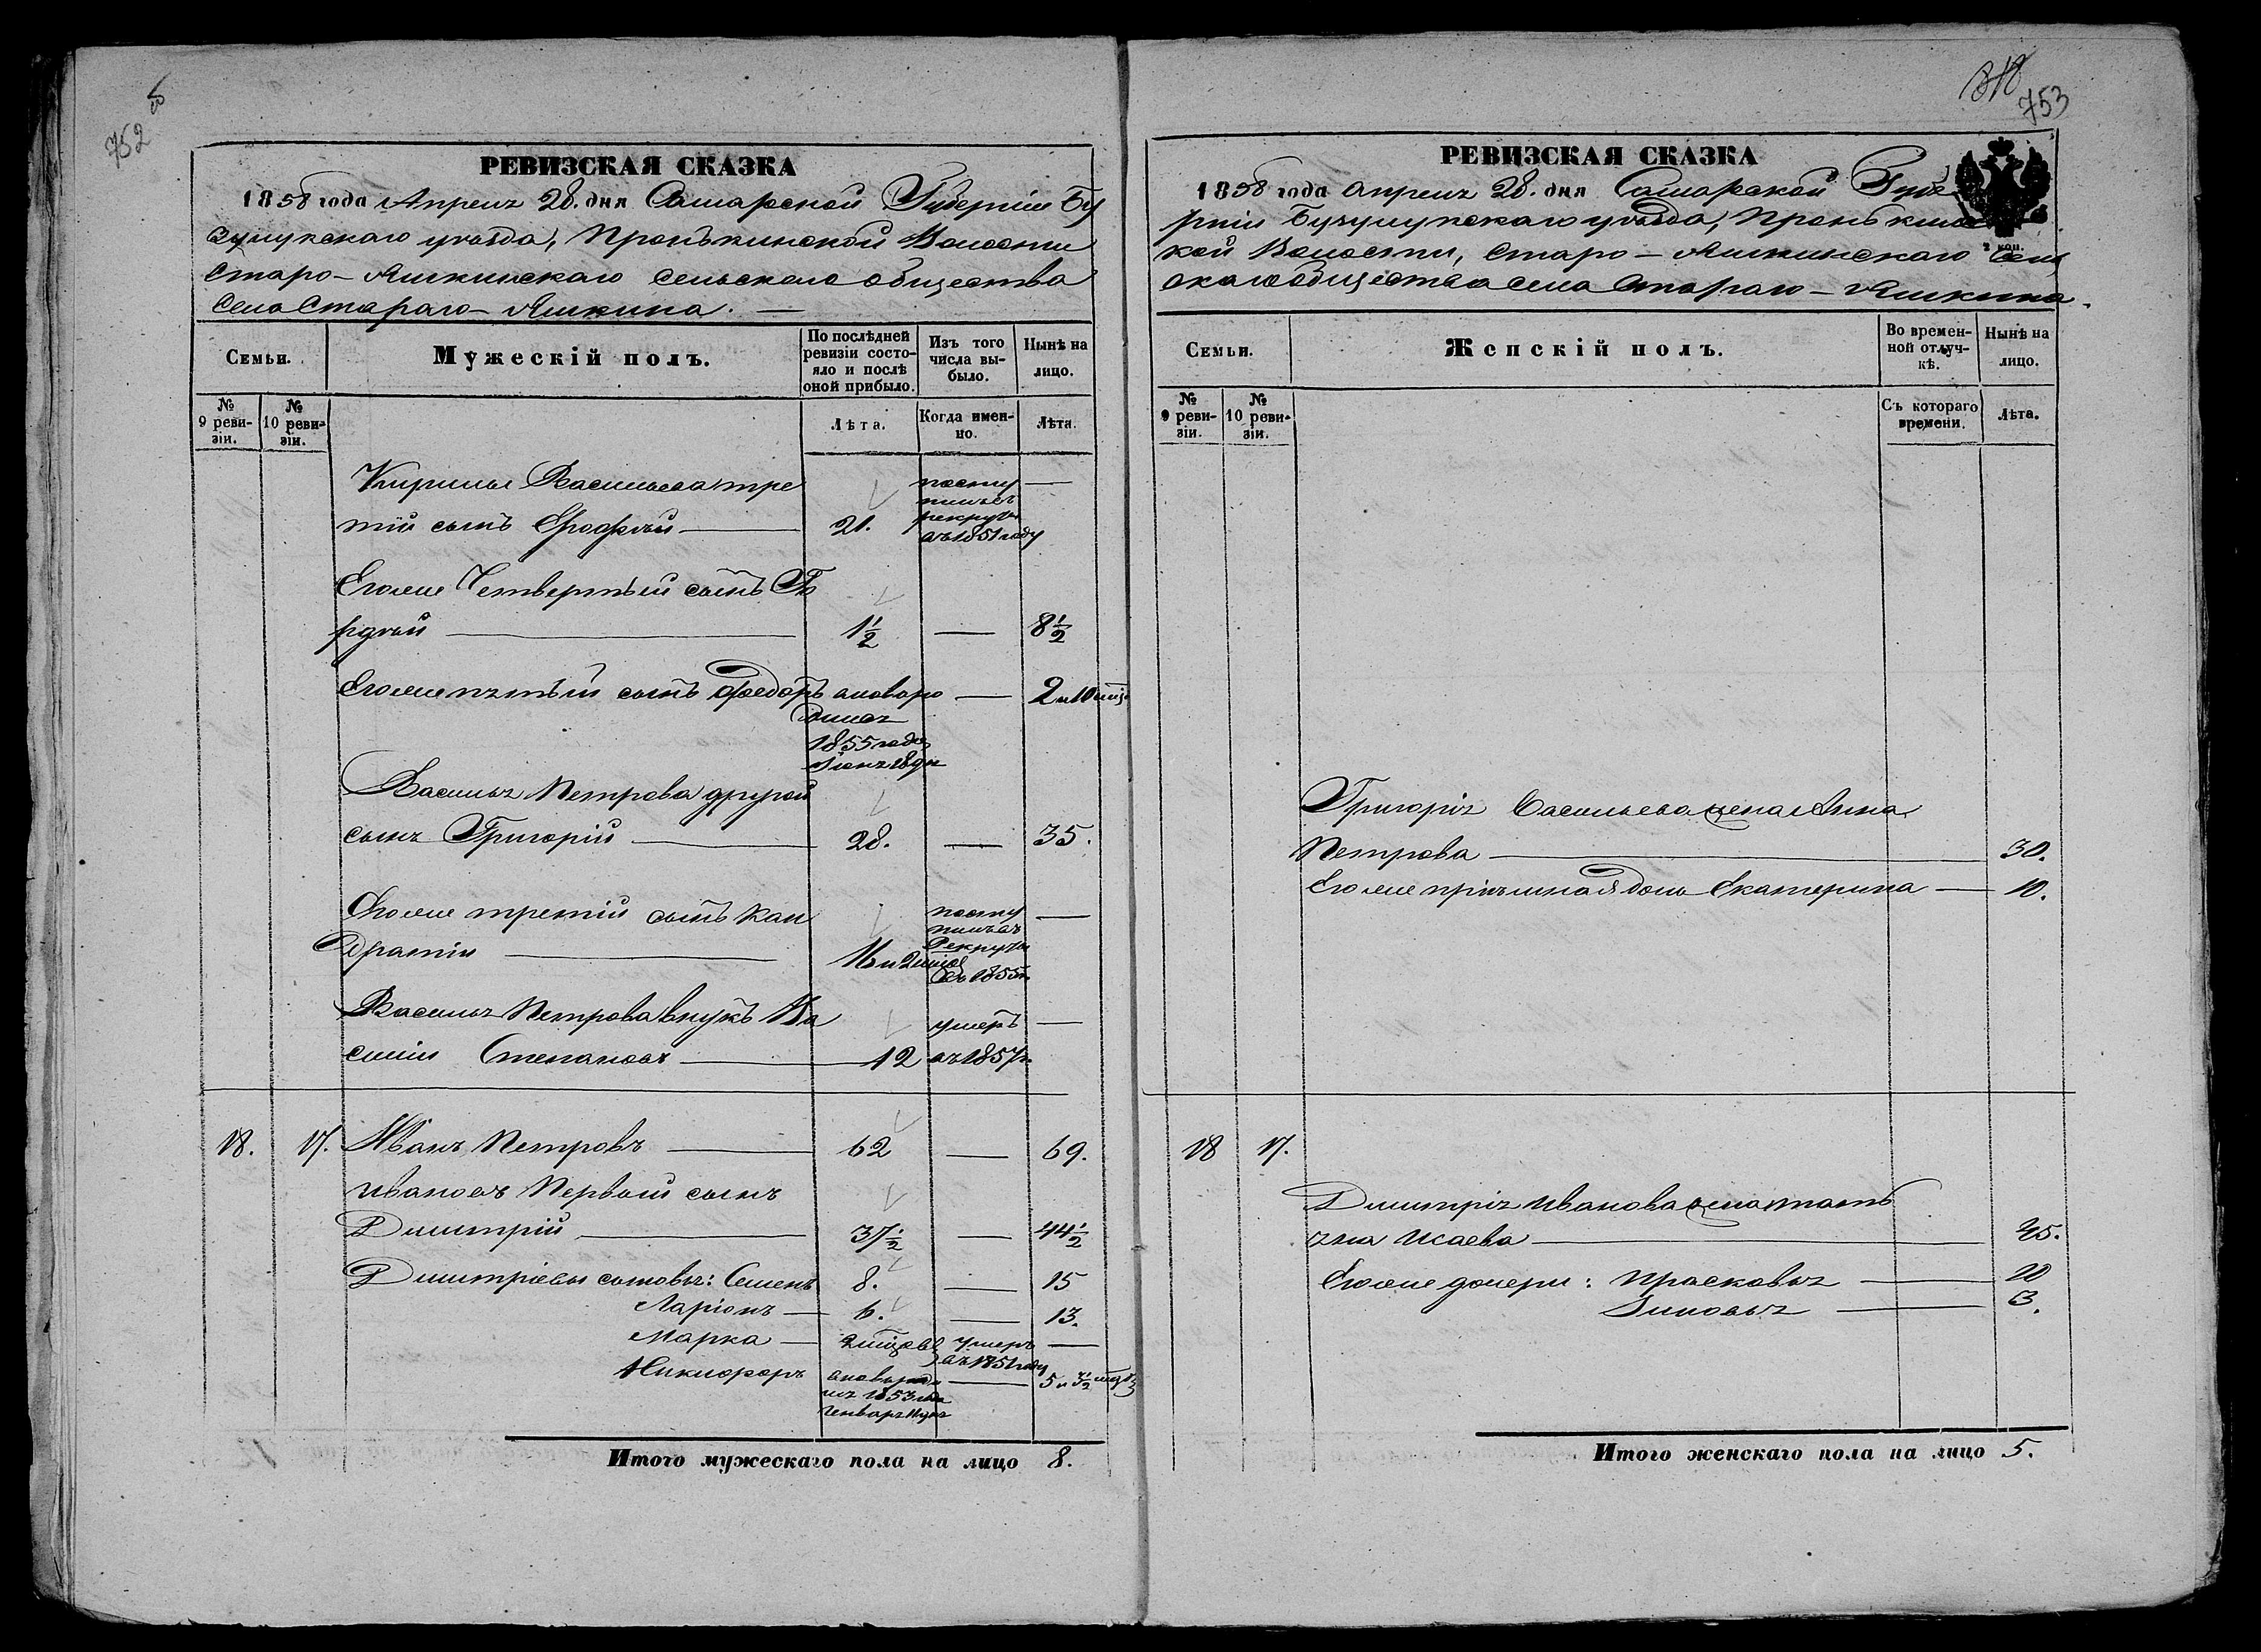 752 об
РЕВИЗСКАЯ СКАЗКА
1858 года Апреля 28. дня Самарской Губерніи Бу
зулукскаго уѣзда, Пронькинской Волости
Старо-Ашкинскаго сельскаго общества
села Стараго-Ашкина. —
Семьи.
Мужескій полъ.
По послѣдней ревизіи состояло и послѣ оной прибыло.
Изъ того числа выбыло.
Нынѣ на лицо.
№ 9 ревизіи.
№ 10 ревизіи.
Лѣта.
Когда именно.
Лѣта.
Кирилы Васильева тре
тій сынъ Ерофѣй — 21. поступилъ въ рекруты въ 1851 году —
Егоже Четвертый сынъ Гу
рдѣй — 1½ — 8½
Егоже пятый сынъ Федоръ вновь родился 1855 года Іюня 18 дн — 2 и 10 мѣц.
Василья Петрова другой
сынъ Григорій — 28. — 35.
Егоже третій сынъ Кон
дратій — 16 и 2 мѣс поступилъ въ Рекруты въ 1855 г. —
Василья Петрова внукъ Ва
силій Степановъ — 12 умеръ въ 1857 г. —
18. 17. Иванъ Петровъ — 62 — 69.
Ивановъ Первый сынъ
Дмитрій — 37½ — 44½
Дмитріевы сыновья: Семенъ 8. — 15
Ларіонъ — 6. — 13.
Марка — 2 мѣцовъ умеръ въ 1851 году —
Никифоръ вновь родился 1853 года Генваря 11 дня — 5 и 3½ мѣц
Итого мужескаго пола на лицо 8.
753
РЕВИЗСКАЯ СКАЗКА
1858 года Апреля 28. дня Самарской Губе
рніи Бузулукскаго уѣзда, Пронькинс
кой Волости, Старо-Ашкинскаго Сель
скаго общества села Стараго-Ашкина.
2 коп.
Семьи.
Женскій полъ.
Во временной отлучкѣ.
Нынѣ на лицо.
№ 9 ревизіи.
№ 10 ревизіи.
Съ котораго времени.
Лѣта.
Григорія Васильева жена Анна
Петрова — 30.
Егоже пріемная дочь Екатерина — 10.
18 17.
Дмитрія Иванова жена Татьяна
Исаева — 45.
Егоже дочери: Прасковья — 20
Зиновья — 3.
Итого женскаго пола на лицо 5.